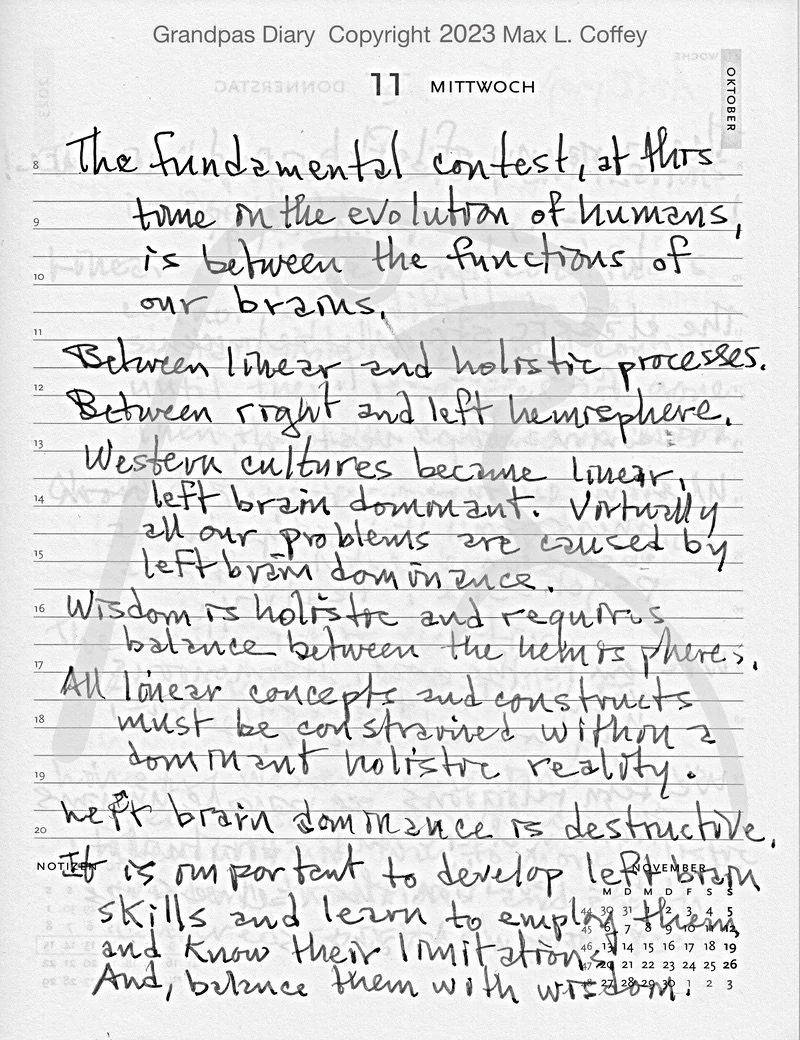 Grandpas Diary Copyright 2023 Max L. Coffey
11 MITTWOCH
OKTOBER
8 The fundamental contest, at this
9 time in the evolution of humans,
is between the functions of
10 our brains.
11 Between linear and holistic processes.
12 Between right and left hemisphere.
13 Western cultures became linear,
14 left brain dominant. Virtually
all our problems are caused by
15 left brain dominance.
16 Wisdom is holistic and requires
balance between the hemispheres.
17 All linear concepts and constructs
18 must be constrained within a
dominant holistic reality.
19
Left brain dominance is destructive.
20
NOTIZEN It is important to develop left brain
skills and learn to employ them,
and know their limitations!
And, balance them with wisdom.
NOVEMBER
M D M D F S S
44 30 31 1 2 3 4 5
45 6 7 8 9 10 11 12
46 13 14 15 16 17 18 19
47 20 21 22 23 24 25 26
48 27 28 29 30 1 2 3